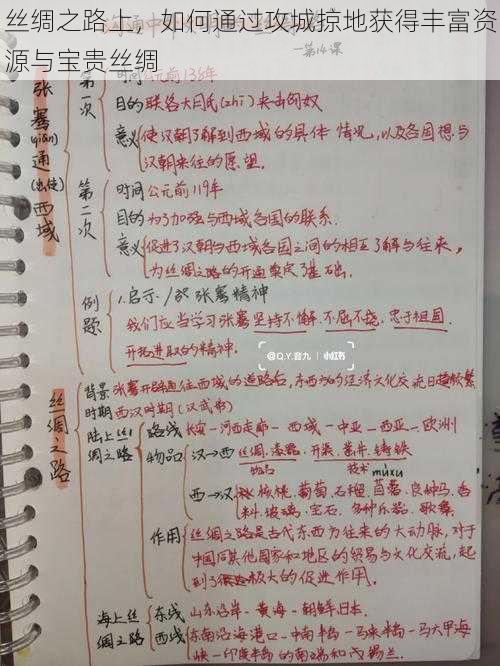 丝绸之路上，如何通过攻城掠地获得丰富资
源与宝贵丝绸
第14课
张骞通西域
(qiān)
(出使)
第一次
时间公元前138年
目的联络大月氏(zhī)夹击匈奴
意义使汉朝了解到西域的具体情况,以及各国想与
汉朝来往的愿望.
第二次
时间公元前119年
目的为了加强与西域各国的联系.
意义促进了汉朝与西域各国之间的相互了解与往来,
为丝绸之路的开通奠定了基础.
例题
1.启示/张骞精神
我们应当学习张骞坚持不懈.不屈不挠.忠于祖国.
开拓进取的精神.
@Q.Y.音九 | 小红书
丝绸之路
背景张骞开辟通往西域的道路后,东西方的经济文化交流日趋频繁
时期西汉时期(汉武帝)
陆上丝绸之路
路线长安一河西走廊一西域一中亚一西亚一欧洲
物品
汉→西 丝绸.漆器.开渠.凿井.铸铁
物品 技术
mùxu
西→汉 核桃.葡萄.石榴.苜蓿.良种马.香
料.玻璃.宝石.多种乐器.歌舞.
作用
丝绸之路是古代东西方往来的大动脉,对于
中国同其他国家和地区的贸易与文化交流,起
到了极大的促进作用.
海上丝绸之路
东线 山东沿岸一黄海一朝鲜.日本.
西线 东南沿海港口一中南半岛一马来半岛一马六甲海
峡一印度半岛的南端和